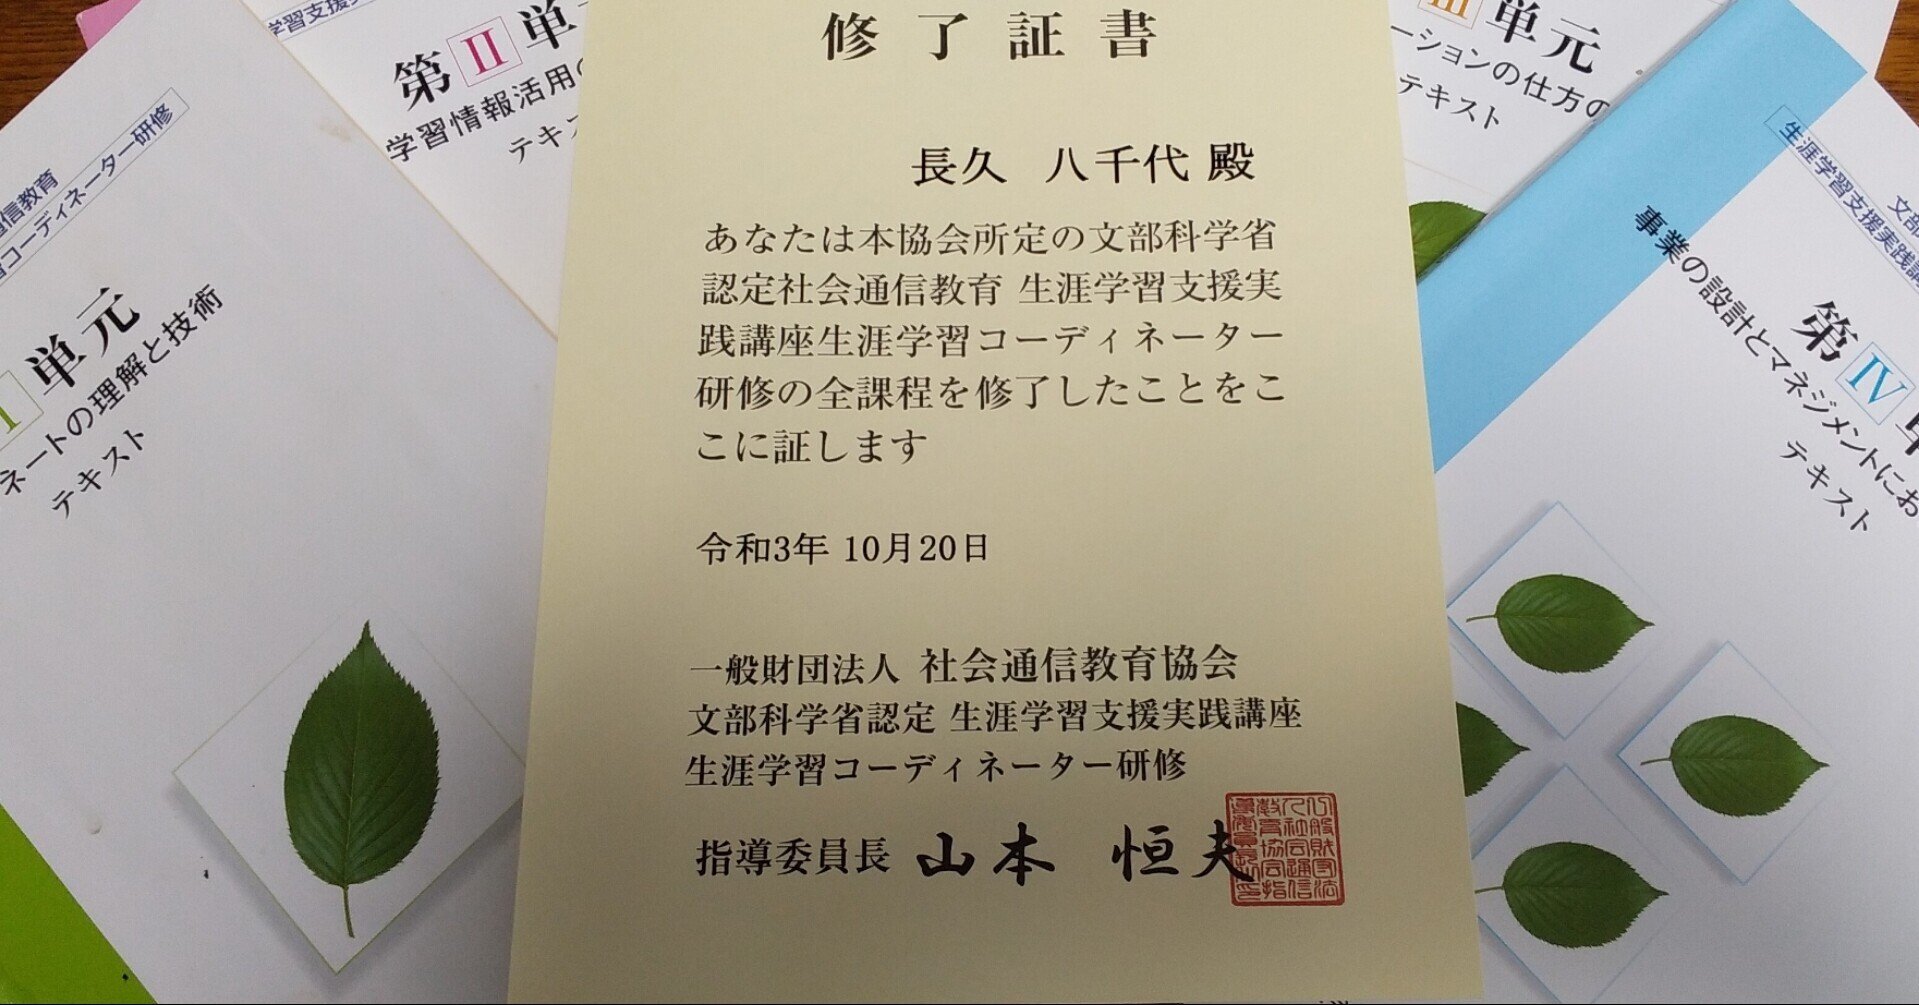 修了証書
長久 八千代 殿
あなたは本協会所定の文部科学省
認定社会通信教育 生涯学習支援実
践講座生涯学習コーディネーター
研修の全課程を修了したことをこ
こに証します
令和3年 10月20日
一般財団法人 社会通信教育協会
文部科学省認定 生涯学習支援実践講座
生涯学習コーディネーター研修
指導委員長 山本 恒夫
通信教育
コーディネーター研修
I 単元
ネートの理解と技術
テキスト
学習支援
第 II 単
学習情報活用の
テキス
III 単元
ーションの仕方の
テキスト
文部
生涯学習支援実践講
第 IV 単
事業の設計とマネジメントにお
テキスト